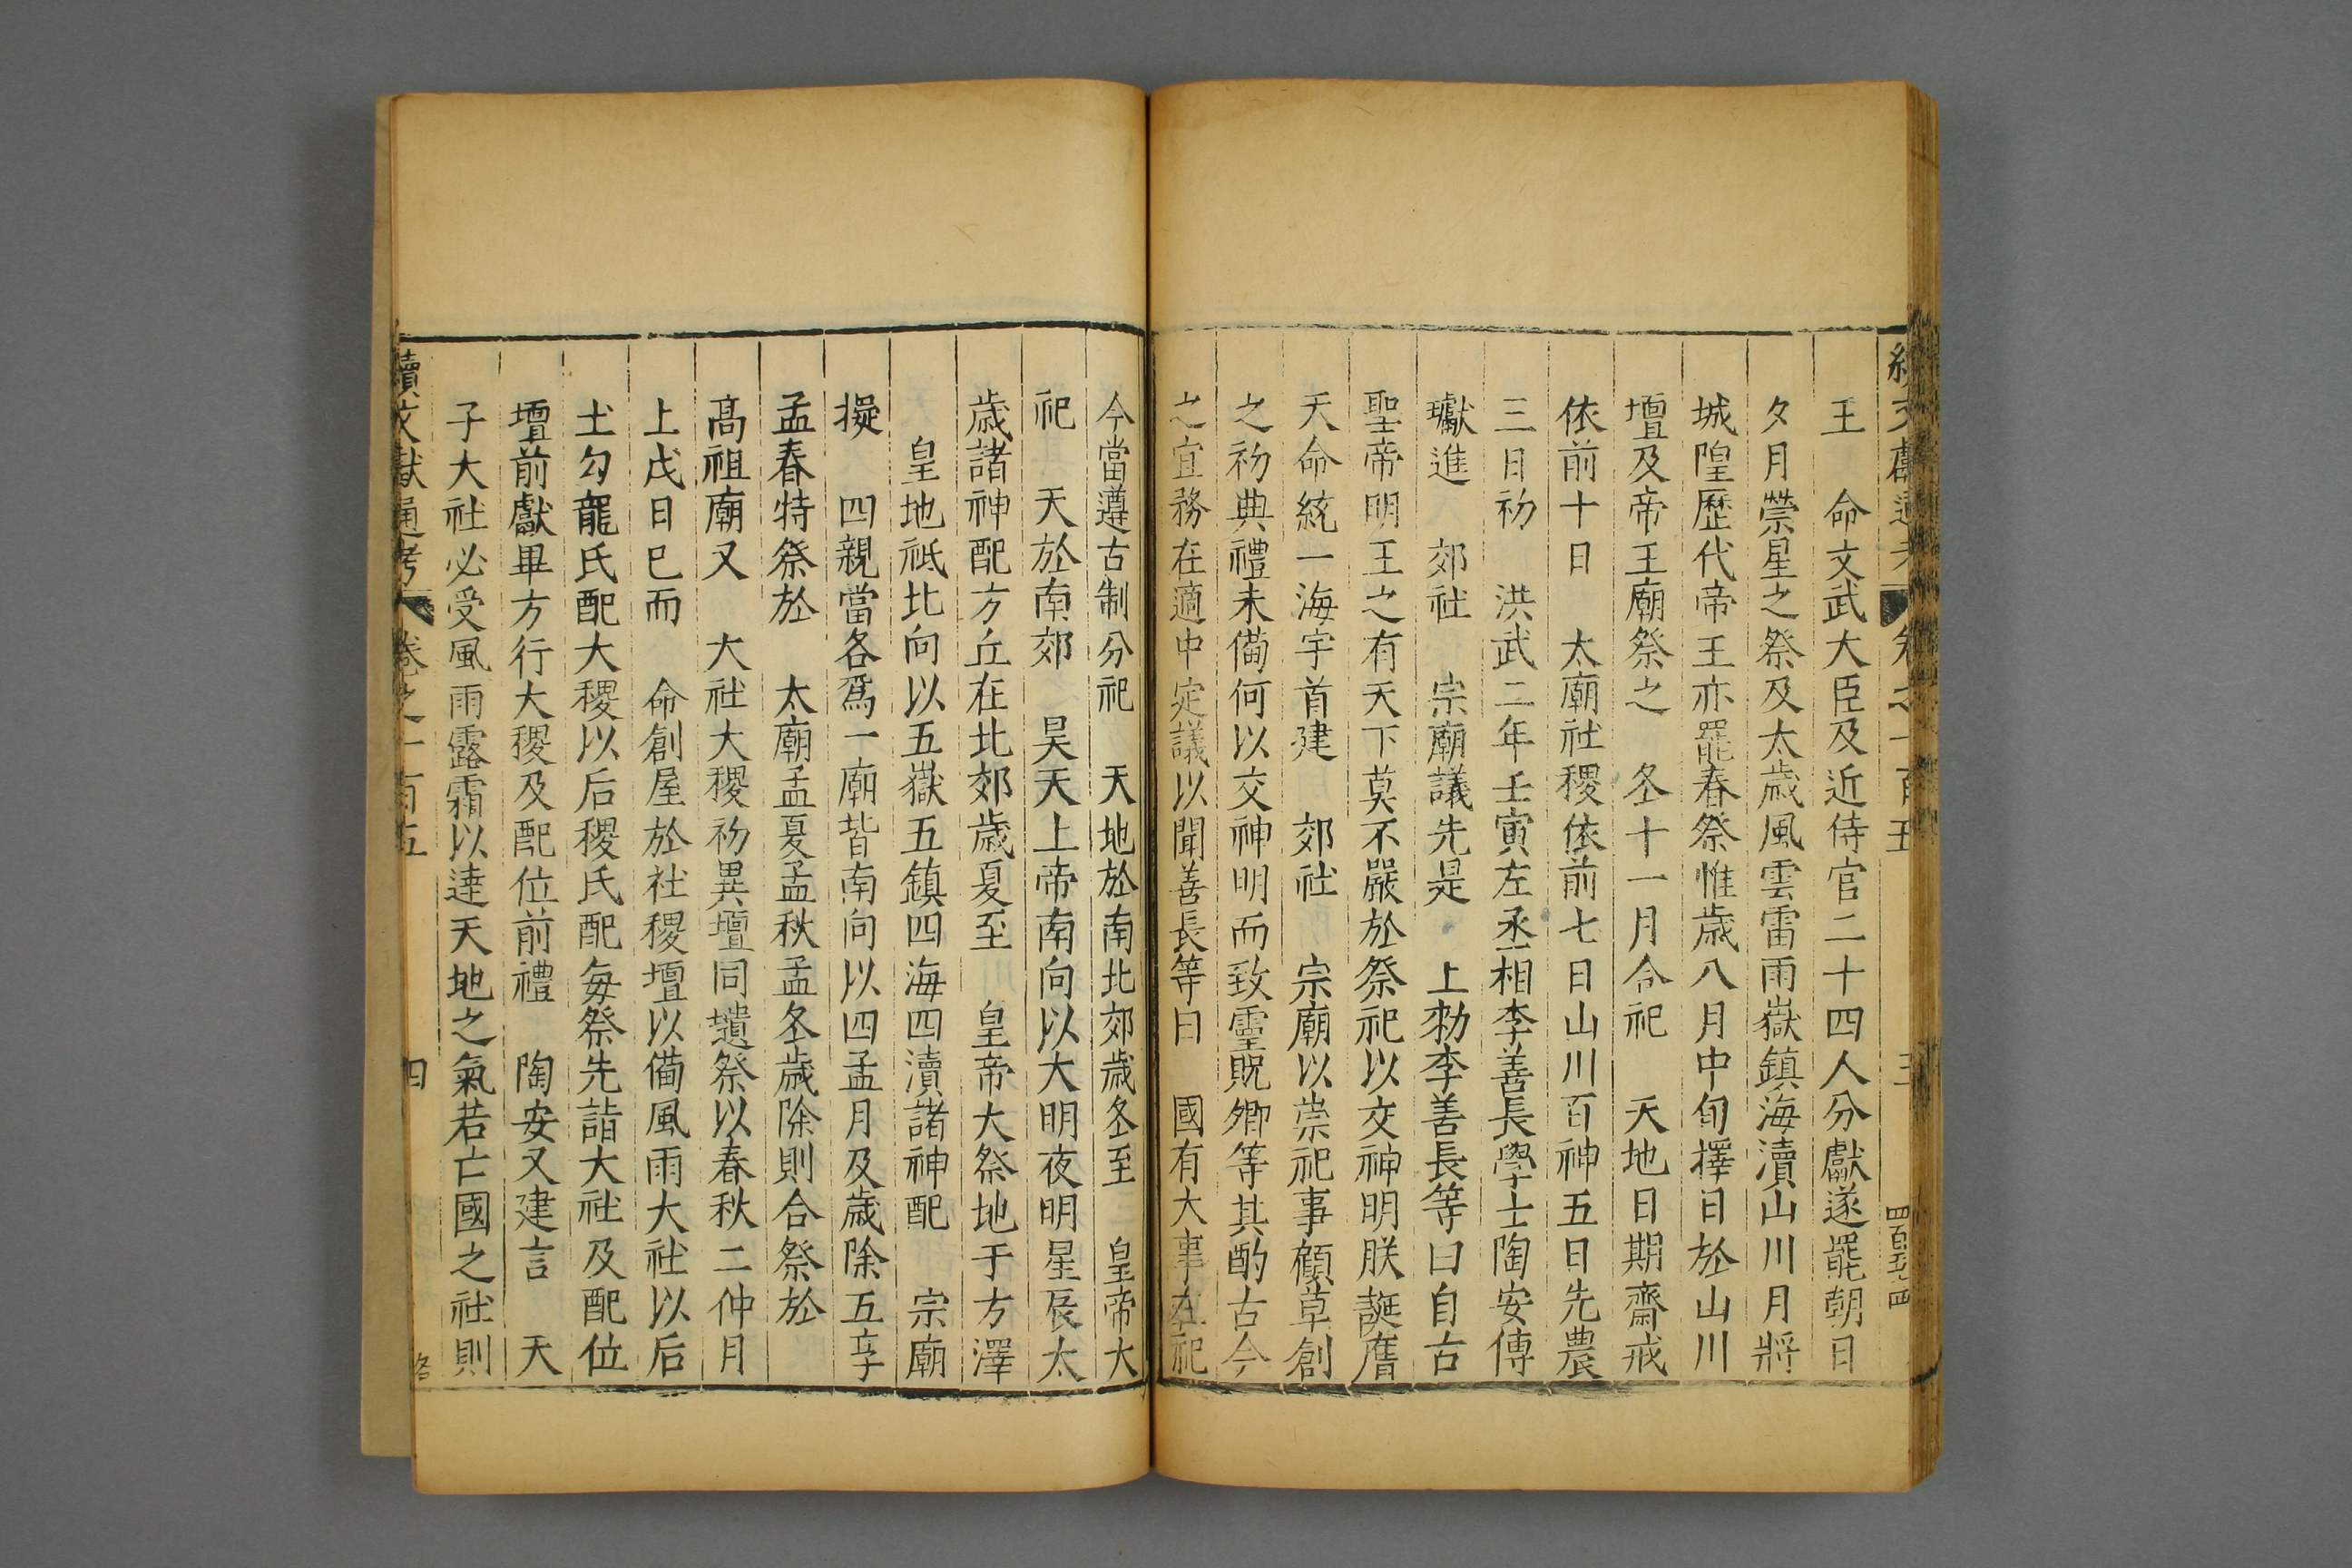 續文獻通考 卷之一百五 三
王 命文武大臣及近侍官二十四人分獻遂罷朝日
夕月禜星之祭及太歲風雲雷雨嶽鎮海瀆山川月將
城隍歷代帝王亦罷春祭惟歲八月中旬擇日於山川
壇及帝王廟祭之 冬十一月令祀 天地日期齋戒
依前十日 太廟社稷依前七日山川百神五日先農
三日初 洪武二年壬寅左丞相李善長學士陶安傳
瓛進 郊社 宗廟議先是 上勑李善長等曰自古
聖帝明王之有天下莫不嚴於祭祀以交神明朕誕膺
天命統一海宇首建 郊社 宗廟以崇祀事顧草創
之初典禮未備何以交神明而致靈貺卿等其酌古今
之宜務在適中定議以聞善長等曰 國有大事在祀
今當遵古制分祀 天地於南北郊歲冬至 皇帝大
祀 天於南郊 昊天上帝南向以大明夜明星辰太
歲諸神配方丘在北郊歲夏至 皇帝大祭地于方澤
皇地祗北向以五嶽五鎮四海四瀆諸神配 宗廟
擬 四親當各爲一廟皆南向以四孟月及歲除五享
孟春特祭於 太廟孟夏孟秋孟冬歲除則合祭於
高祖廟又 大社大稷初異壇同壝祭以春秋二仲月
上戊日巳而 命創屋於社稷壇以備風雨大社以后
土勾龍氏配大稷以后稷氏配每祭先詣大社及配位
壇前獻畢方行大稷及配位前禮 陶安又建言 天
子大社必受風雨露霜以達天地之氣若亡國之社則
續文獻通考 卷之一百五 四